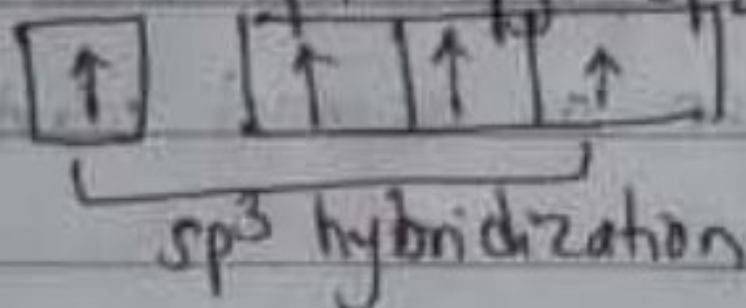 ↑ ↑ ↑ ↑
sp³ hybridization